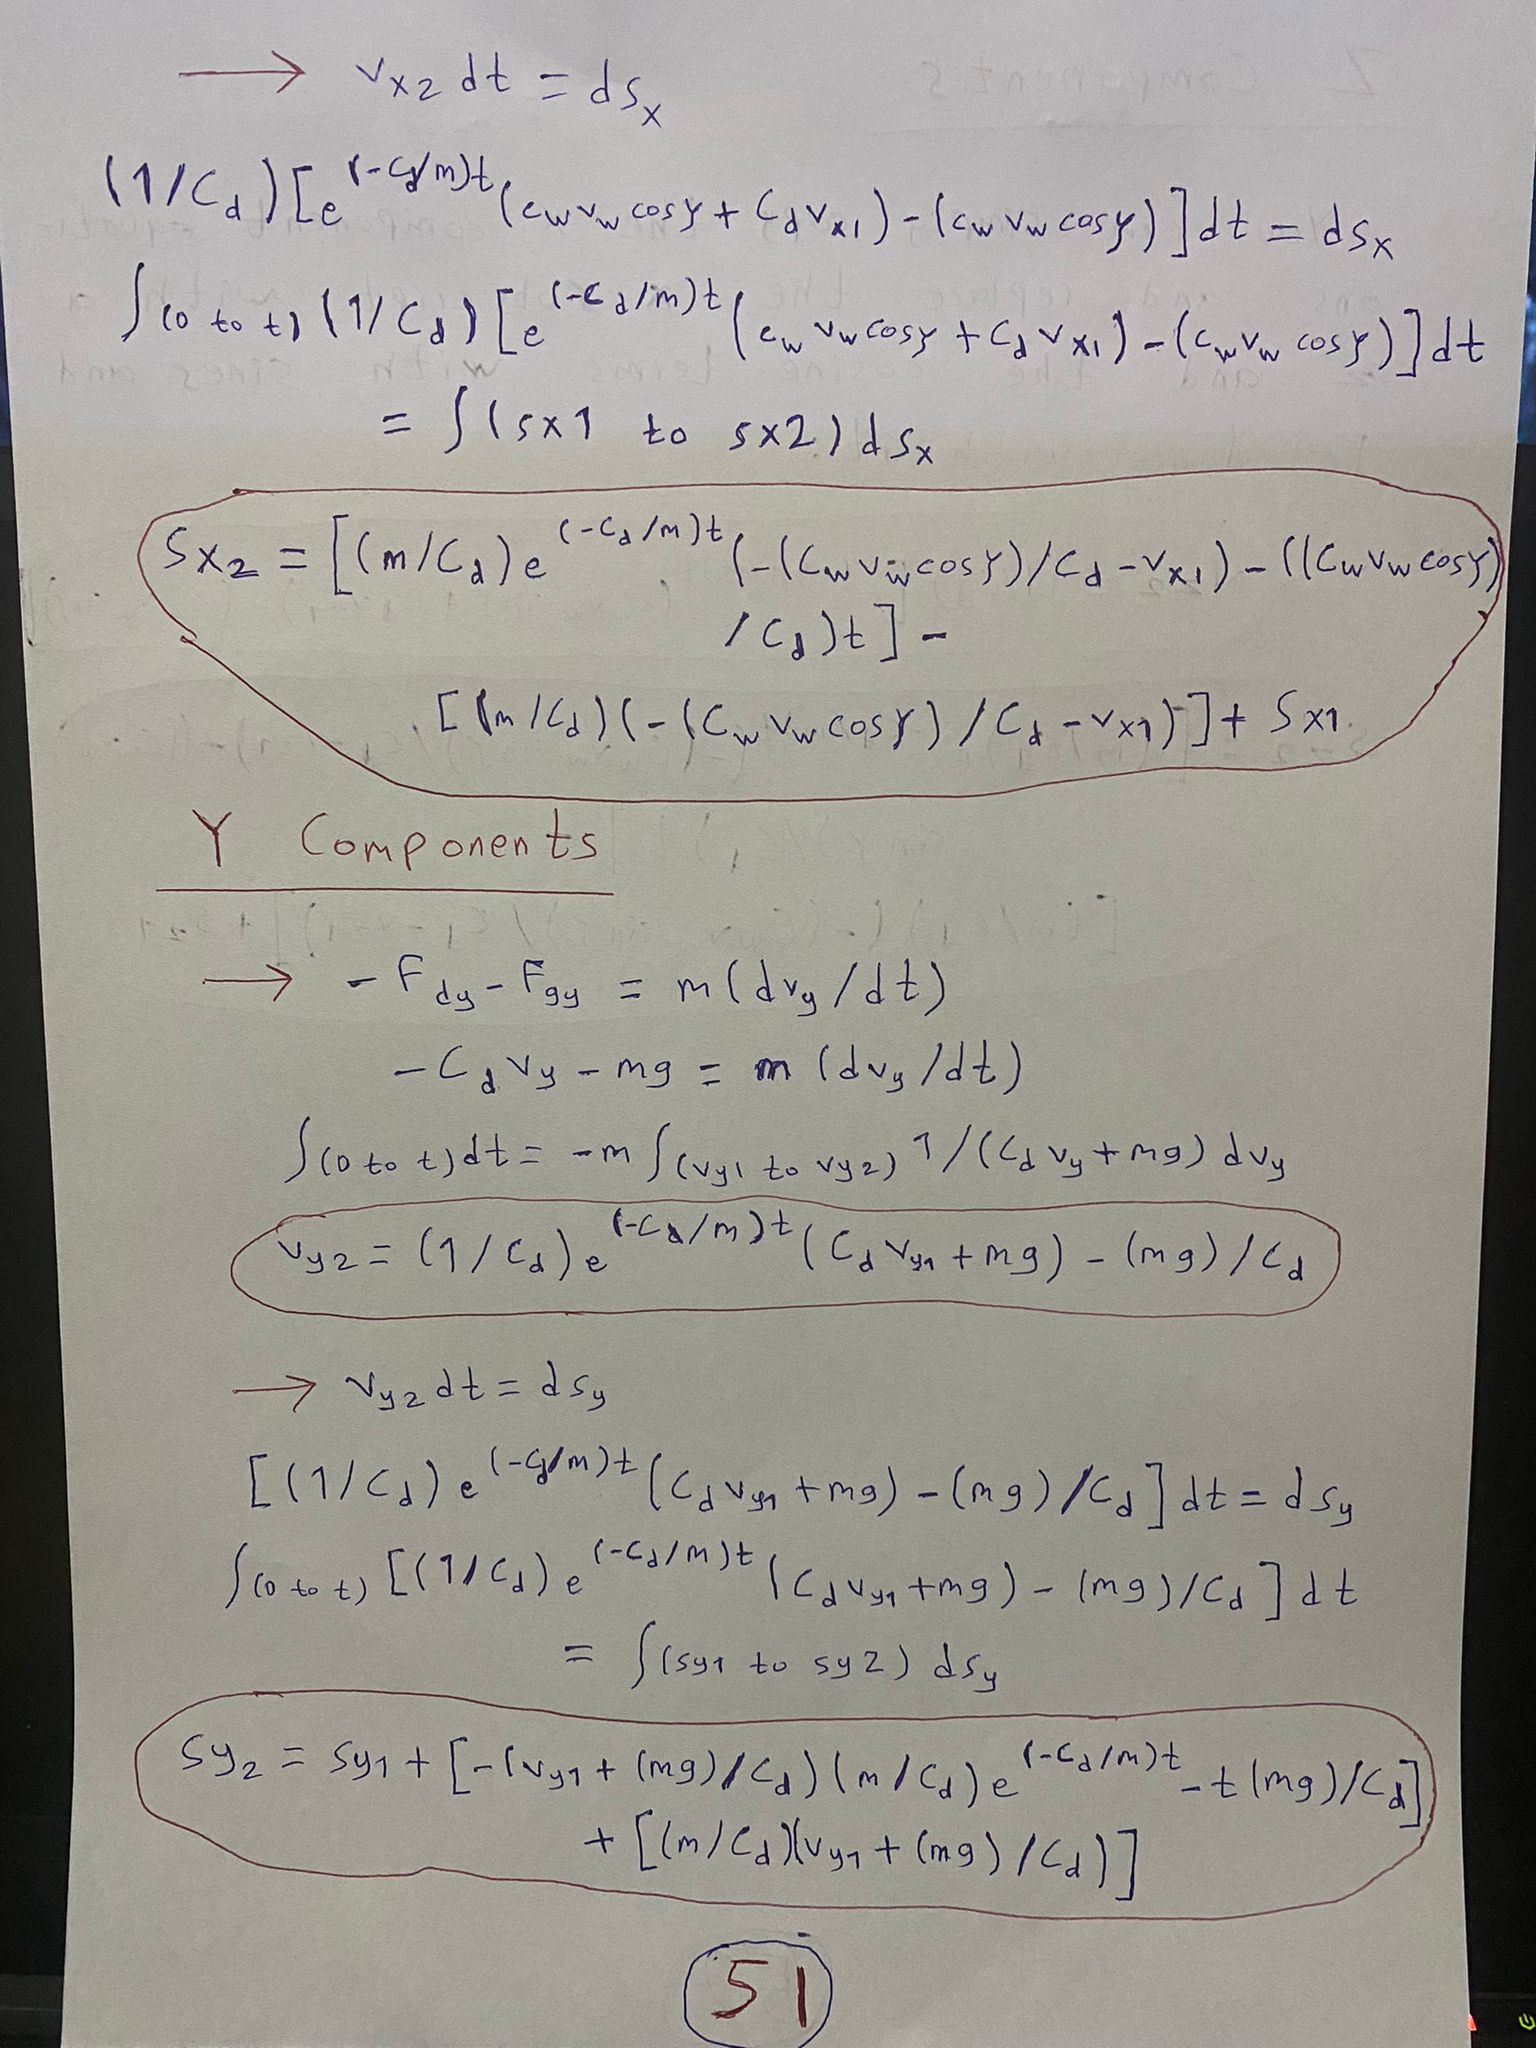 → Vx2 dt = dSx
(1/Cd)[e^(-Cd/m)t (CwVwcosγ + CdVx1) - (CwVwcosγ)]dt = dSx
∫(0 to t) (1/Cd)[e^(-Cd/m)t (CwVwcosγ + CdVx1) - (CwVwcosγ)]dt
= ∫(sx1 to sx2) dSx
Sx2 = [(m/Cd)e^(-Cd/m)t (-(CwVwcosγ)/Cd - Vx1) - ((CwVwcosγ)
/Cd)t] -
[(m/Cd)(-(CwVwcosγ)/Cd - Vx1)] + Sx1
Y Components
→ -Fdy - Fgy = m(dvy/dt)
-CdVy - mg = m(dvy/dt)
∫(0 to t)dt = -m∫(vy1 to vy2) 1/(CdVy + mg) dvy
Vy2 = (1/Cd)e^(-Cd/m)t (CdVy1 + mg) - (mg)/Cd
→ Vy2 dt = dSy
[(1/Cd)e^(-Cd/m)t (CdVy1 + mg) - (mg)/Cd]dt = dSy
∫(0 to t) [(1/Cd)e^(-Cd/m)t (CdVy1 + mg) - (mg)/Cd]dt
= ∫(sy1 to sy2) dSy
Sy2 = Sy1 + [-(Vy1 + (mg)/Cd)(m/Cd)e^(-Cd/m)t - t(mg)/Cd]
+ [(m/Cd)(Vy1 + (mg)/Cd)]
51